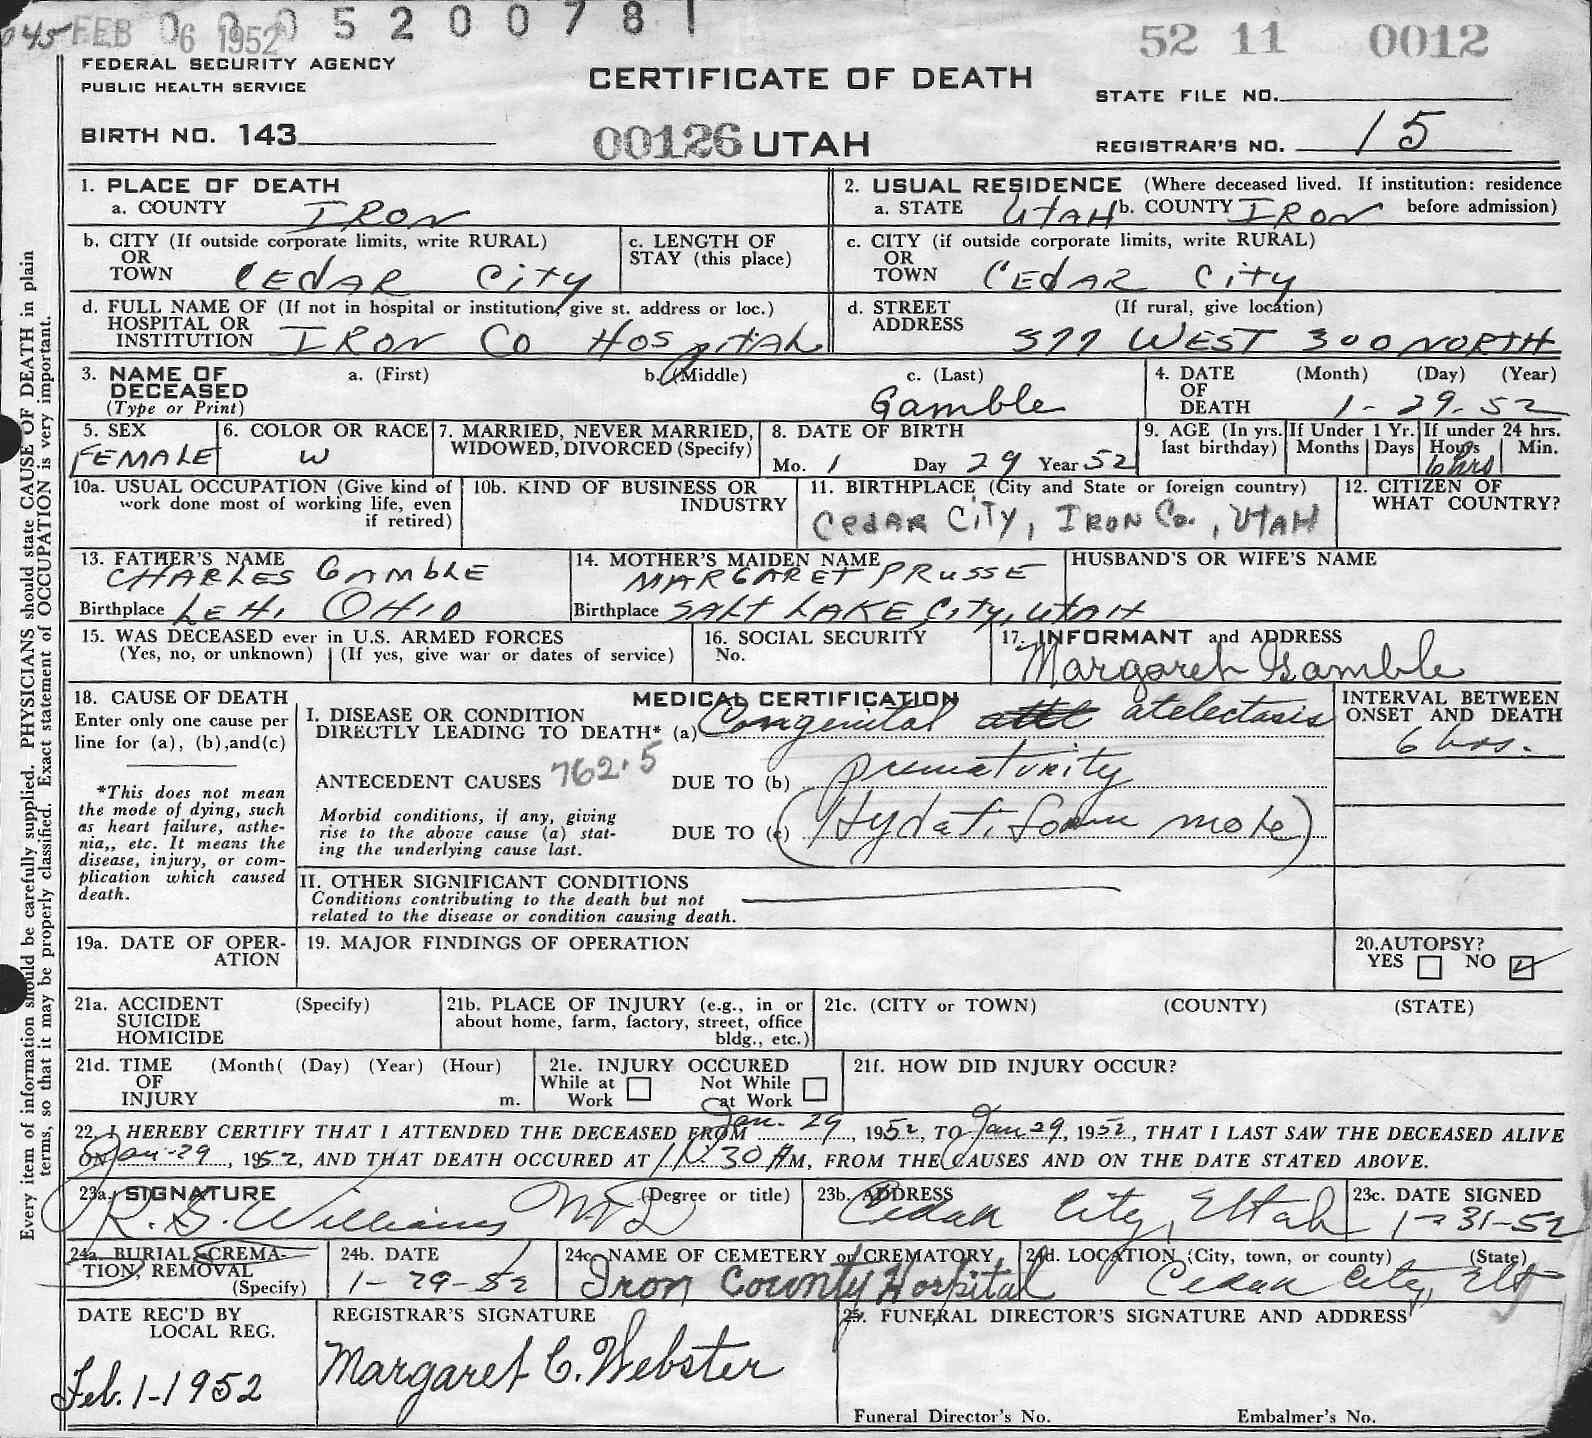 045 FEB 06 1952 0 5 2 0 0 7 8 1
52 11 0012
FEDERAL SECURITY AGENCY
PUBLIC HEALTH SERVICE
CERTIFICATE OF DEATH
STATE FILE NO.
BIRTH NO. 143
00126 UTAH
REGISTRAR'S NO. 15
1. PLACE OF DEATH
a. COUNTY IRON
2. USUAL RESIDENCE (Where deceased lived. If institution: residence before admission)
a. STATE UTAH b. COUNTY IRON
b. CITY (If outside corporate limits, write RURAL)
OR
TOWN CEDAR CITY
c. LENGTH OF
STAY (this place)
c. CITY (if outside corporate limits, write RURAL)
OR
TOWN CEDAR CITY
d. FULL NAME OF (If not in hospital or institution, give st. address or loc.)
HOSPITAL OR
INSTITUTION IRON CO HOSPITAL
d. STREET (If rural, give location)
ADDRESS 577 WEST 300 NORTH
3. NAME OF
DECEASED
(Type or Print)
a. (First) b. (Middle) c. (Last)
Gamble
4. DATE (Month) (Day) (Year)
OF
DEATH 1-29-52
5. SEX
FEMALE
6. COLOR OR RACE
W
7. MARRIED, NEVER MARRIED,
WIDOWED, DIVORCED (Specify)
8. DATE OF BIRTH
Mo. 1 Day 29 Year 52
9. AGE (In yrs. last birthday)
If Under 1 Yr.
Months Days
If under 24 hrs.
Hours Min.
6 hrs
10a. USUAL OCCUPATION (Give kind of
work done most of working life, even
if retired)
10b. KIND OF BUSINESS OR
INDUSTRY
11. BIRTHPLACE (City and State or foreign country)
CEDAR CITY, IRON CO., UTAH
12. CITIZEN OF
WHAT COUNTRY?
13. FATHER'S NAME
CHARLES GAMBLE
Birthplace LEHI OHIO
14. MOTHER'S MAIDEN NAME
MARGARET PRUSSE
Birthplace SALT LAKE CITY, UTAH
HUSBAND'S OR WIFE'S NAME
15. WAS DECEASED ever in U.S. ARMED FORCES
(Yes, no, or unknown) (If yes, give war or dates of service)
16. SOCIAL SECURITY
No.
17. INFORMANT and ADDRESS
Margaret Gamble
18. CAUSE OF DEATH
Enter only one cause per
line for (a), (b), and (c)
*This does not mean
the mode of dying, such
as heart failure, asthe-
nia,, etc. It means the
disease, injury, or com-
plication which caused
death.
MEDICAL CERTIFICATION
I. DISEASE OR CONDITION
DIRECTLY LEADING TO DEATH* (a) Congenital atelectasis
ANTECEDENT CAUSES 762.5 DUE TO (b) prematurity
Morbid conditions, if any, giving
rise to the above cause (a) stat-
ing the underlying cause last.
DUE TO (c) (Hydatiform mole)
INTERVAL BETWEEN
ONSET AND DEATH
6 hrs.
II. OTHER SIGNIFICANT CONDITIONS
Conditions contributing to the death but not
related to the disease or condition causing death.
19a. DATE OF OPER-
ATION
19. MAJOR FINDINGS OF OPERATION
20. AUTOPSY?
YES NO
21a. ACCIDENT (Specify)
SUICIDE
HOMICIDE
21b. PLACE OF INJURY (e.g., in or
about home, farm, factory, street, office
bldg., etc.)
21c. (CITY or TOWN) (COUNTY) (STATE)
21d. TIME (Month( (Day) (Year) (Hour)
OF
INJURY m.
21e. INJURY OCCURED
While at Work Not While at Work
21f. HOW DID INJURY OCCUR?
22. I HEREBY CERTIFY THAT I ATTENDED THE DECEASED FROM Jan. 29, 1952, TO Jan 29, 1952, THAT I LAST SAW THE DECEASED ALIVE
ON Jan-29, 1952, AND THAT DEATH OCCURED AT 11:30 AM, FROM THE CAUSES AND ON THE DATE STATED ABOVE.
23a. SIGNATURE (Degree or title)
R. G. Williams M.D.
23b. ADDRESS
Cedar City, Utah
23c. DATE SIGNED
1-31-52
24a. BURIAL, CREMA-
TION, REMOVAL
(Specify)
24b. DATE
1-29-52
24c. NAME OF CEMETERY or CREMATORY
Iron County Hospital
24d. LOCATION (City, town, or county) (State)
Cedar City, Ut
DATE REC'D BY
LOCAL REG.
Feb. 1-1952
REGISTRAR'S SIGNATURE
Margaret C. Webster
25. FUNERAL DIRECTOR'S SIGNATURE AND ADDRESS
Funeral Director's No. Embalmer's No.
Every item of information should be carefully supplied. PHYSICIANS should state CAUSE OF DEATH in plain
terms, so that it may be properly classified. Exact statement of OCCUPATION is very important.